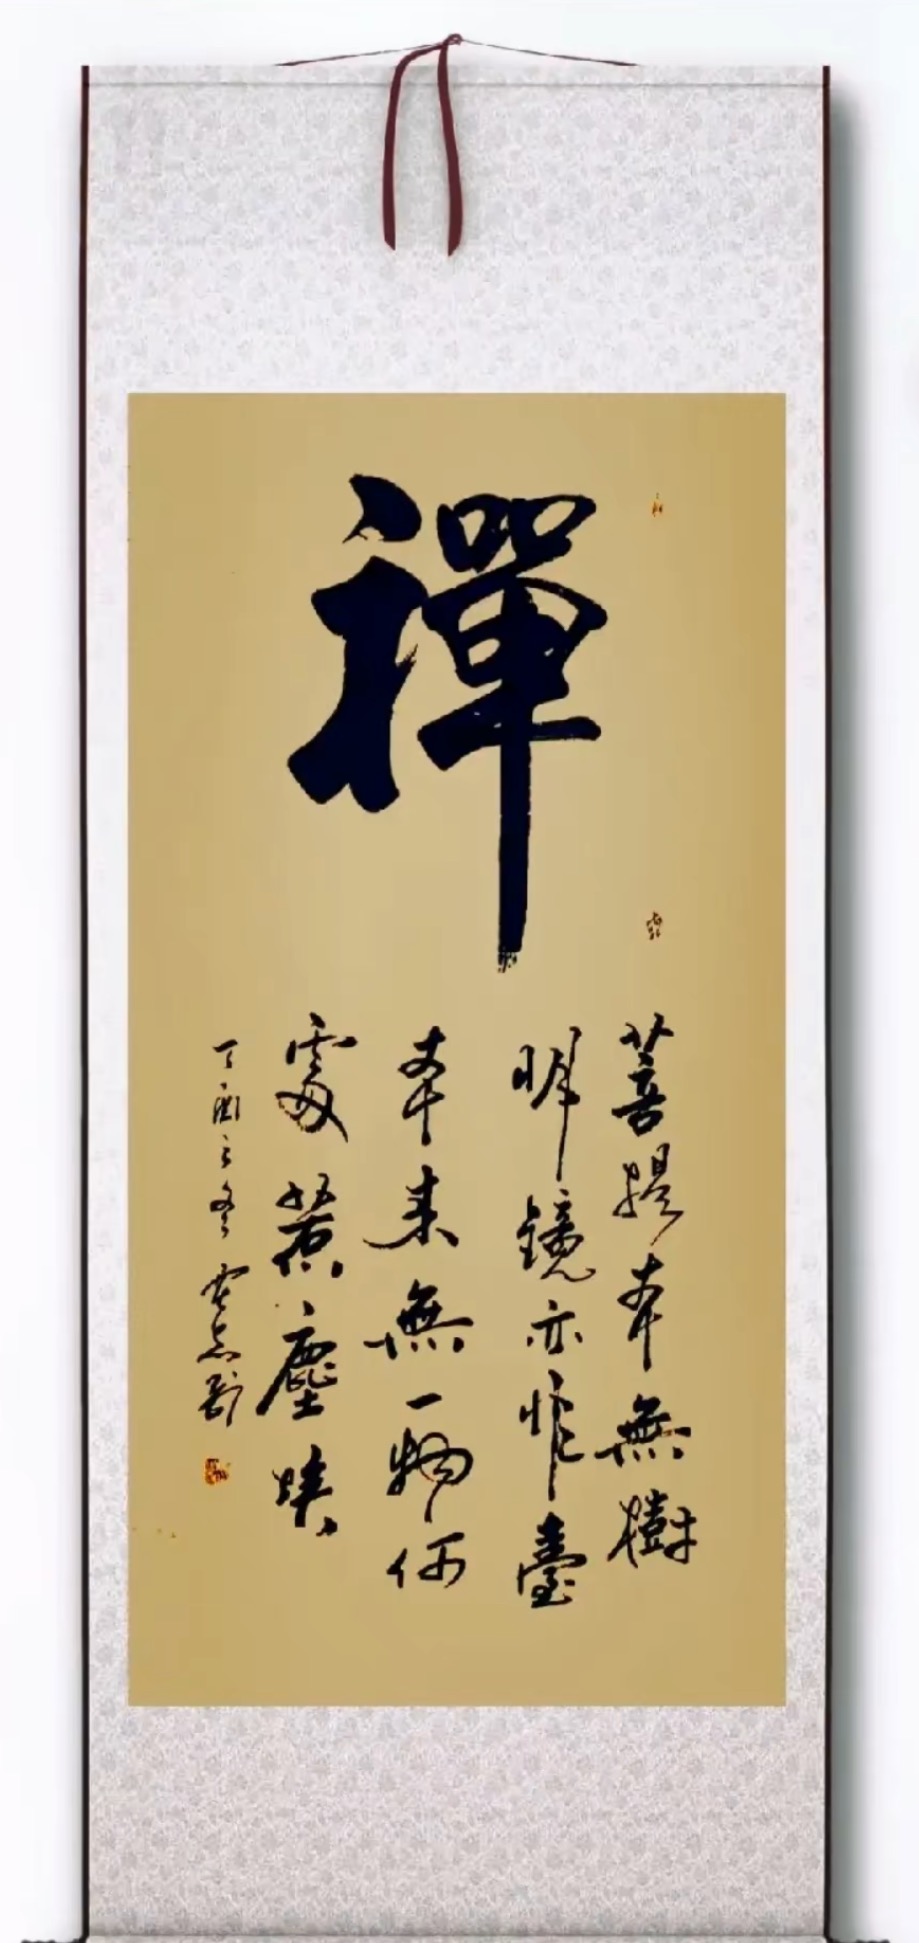 禪
菩提本無樹
明鏡亦非臺
本来無一物何
處惹塵埃
丁酉之冬